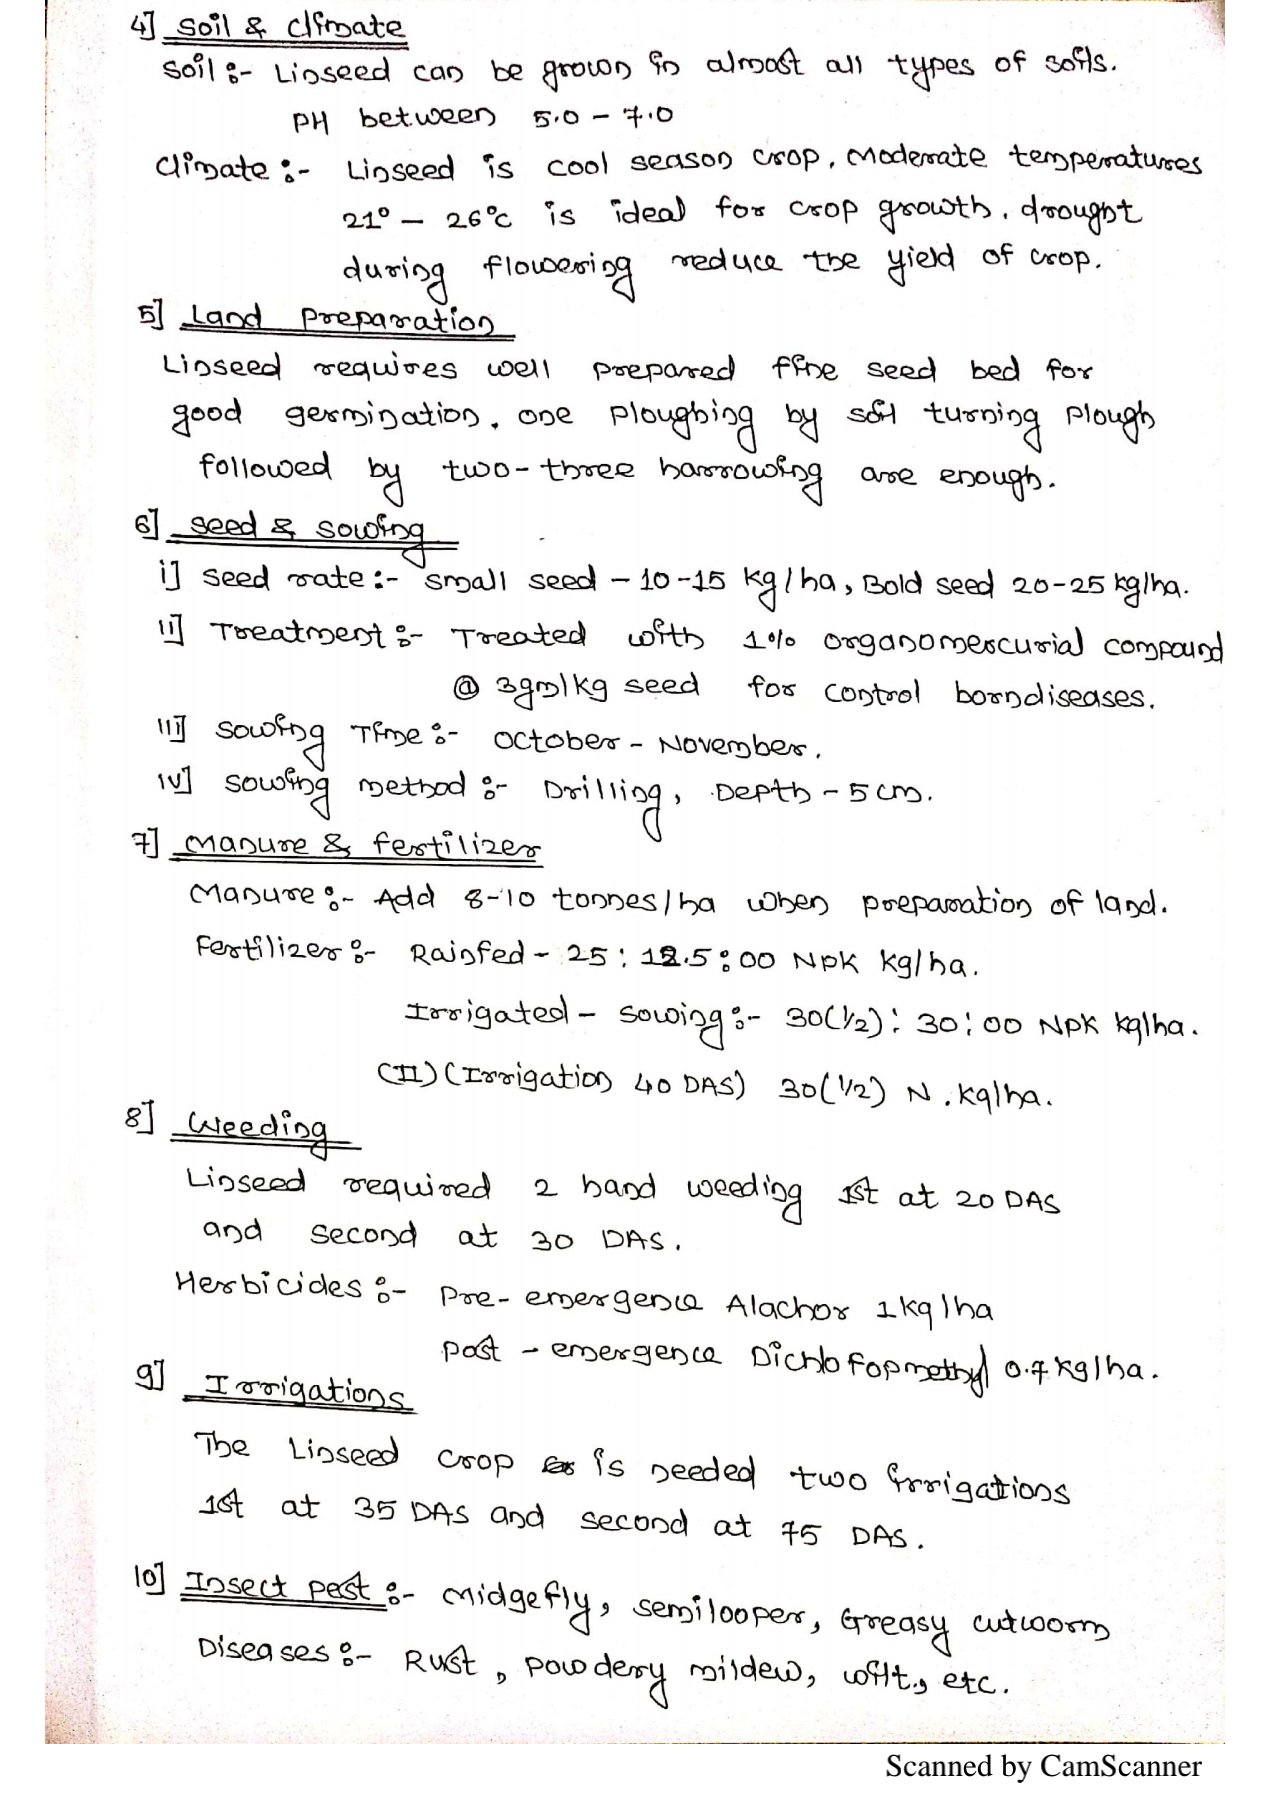 4] Soil & climate
Soil :- Linseed can be grown in almost all types of soils.
PH between 5.0 - 7.0
Climate :- Linseed is cool season crop. Moderate temperatures
21° - 26°c is ideal for crop growth. drought
during flowering reduce the yield of crop.
5] Land preparation
Linseed requires well prepared fine seed bed for
good germination. one ploughing by soil turning plough
followed by two-three harrowing are enough.
6] Seed & sowing
i] seed rate :- small seed - 10-15 kg/ha, Bold seed 20-25 kg/ha.
ii] Treatment :- Treated with 1% organomercurial compound
@ 3gm/kg seed for control borndiseases.
iii] Sowing Time :- October - November.
iv] Sowing method :- Drilling, Depth - 5 cm.
7] Manure & fertilizer
Manure :- Add 8-10 tonnes/ha when preparation of land.
Fertilizer :- Rainfed - 25 : 12.5 : 00 NPK kg/ha.
Irrigated - sowing :- 30(1/2) : 30 : 00 NPK kg/ha.
(II) (Irrigation 40 DAS) 30(1/2) N. kg/ha.
8] Weeding
Linseed required 2 hand weeding 1st at 20 DAS
and second at 30 DAS.
Herbicides :- Pre-emergence Alachor 1 kg/ha
post - emergence Dichlofopmethyl 0.7 kg/ha.
9] Irrigations
The Linseed crop is needed two irrigations
1st at 35 DAS and second at 75 DAS.
10] Insect pest :- Midgefly, semilooper, Greasy cutworm
Diseases :- Rust, powdery mildew, wilt, etc.
Scanned by CamScanner